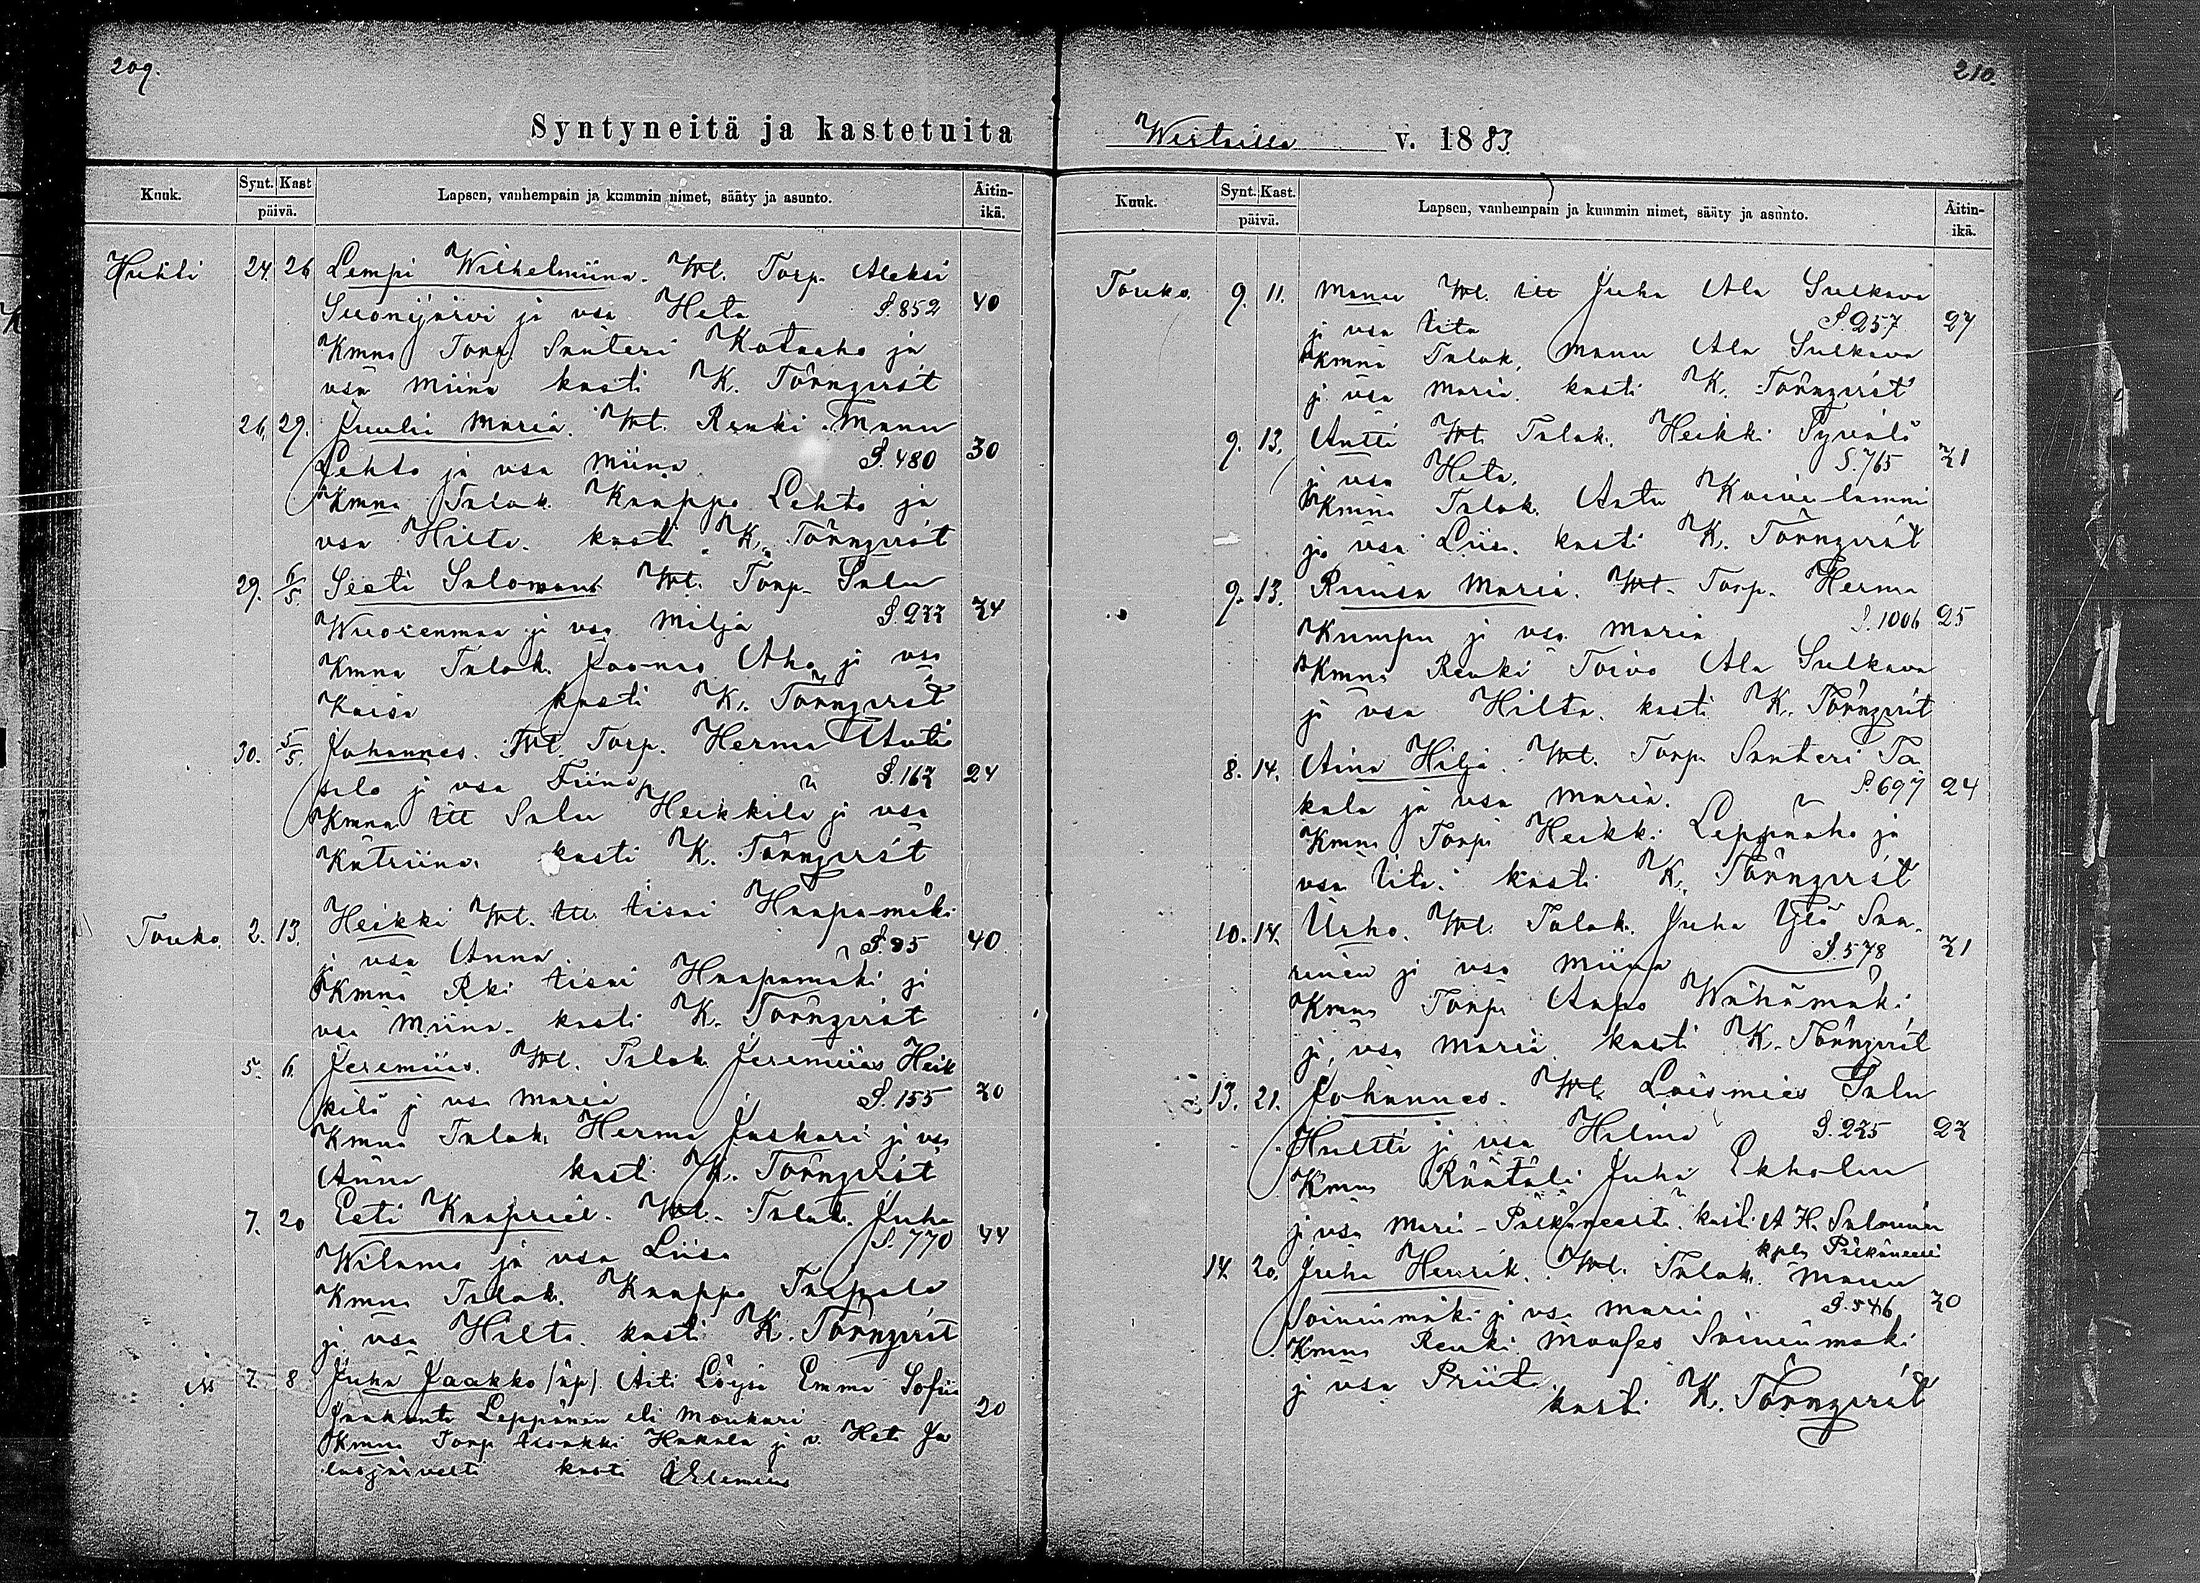 209.
Syntyneitä ja kastetuita
Kuuk. Synt. Kast päivä. Lapsen, vanhempain ja kummin nimet, sääty ja asunto. Äitin-ikä.
Huhti 24. 26 Lempi Wilhelmiina. Vt. Torp. Aleksi
Suonijärvi ja vsa Heta S. 852 40
Kmna Torp. Santeri Kotaaho ja
vsa Miina kasti K. Törnqvist
26. 29. Juulia Maria. Vt. Renki Manu
Lehto ja vsa Miina S. 480 30
Kmna Talok. Kaappo Lehto ja
vsa Hilta. kasti K. Törnqvist
29. 6/5. Seeti Salomon. Vt. Torp. Salu
Wuorenmaa ja vsa Milja S. 233 34
Kmna Talok. Joonas Aho ja vsa
Kaisa kasti K. Törnqvist
30. 5/5. Johannes. Vt. Torp. Herma Anti
salo ja vsa Fiina S. 163 24
Kmna itt Salu Heikkilä ja vsa
Katriina. kasti K. Törnqvist
Touko. 2. 13. Heikki Vt. itt. Iisai Haapamäki
ja vsa Anna S. 95 40
Kmna Rki Iisai Haapamäki ja
vsa Miina. kasti K. Törnqvist
5. 6. Jeremiias. Vt. Talok. Jeremiias Heik
kilä ja vsa Maria S. 155 30
Kmna Talok. Herma Jaskari ja vsa
Anna kasti K. Törnqvist
7. 20 Eeti Kaapriel. Vt. Talok. Juha
Wilamo ja vsa Liisa S. 770 44
Kmna Talok. Kaappo Taipale
ja vsa Hilta. kasti K. Törnqvist
7. 8 Juha Jaakko (äp). Äiti Löysä Emma Sofiia
Jaakont. Leppänen eli Monkari 20
Kmna Torp Iisakki Hakala ja v. Heta Ja
lasjärveltä kasti
210.
v. 1883.
Kuuk. Synt. Kast. päivä. Lapsen, vanhempain ja kummin nimet, sääty ja asunto. Äitin-ikä.
Touko. 9. 11. Manu Vt. itt Juha Ala Sulkava
ja vsa Iita S. 257 27
Kmna Talok. Manu Ala Sulkava
ja vsa Maria. kasti K. Törnqvist
9. 13. Antti Vt. Talok. Heikki Syvälä
ja vsa Heta. S. 765 31
Kmna Talok. Antu Koivulammi
ja vsa Liisa. kasti K. Törnqvist
9. 13. Ruusa Maria. Vt. Torp. Herma
Kumpu ja vsa Maria S. 1006 25
Kmna Renki Toivo Ala Sulkava
ja vsa Hilta. kasti K. Törnqvist
8. 14. Aina Hilja. Vt. Torp. Santeri Ta
kala ja vsa Maria. S. 697 24
Kmna Torp. Heikki Leppäaho ja
vsa Iita. kasti K. Törnqvist
10. 14. Urho. Vt. Talok. Juha Ylä Saa
rinen ja vsa Miina S. 578 31
Kmna Torp. Aapo Wähämäki
ja vsa Maria kasti K. Törnqvist
13. 21. Johannes. Vt. Loismies Salu
Hultti ja vsa Hilma S. 235 23
Kmna Räätäli Juha Ekholm
ja vsa Maria Pälkäneeltä. kasti A. H. Salminen
kpln Pälkäneell
14. 20. Juha Henrik. Vt. Talok. Manu
Soininmäki ja vsa Maria S. 546 30
Kmna Renki Mooses Soininmäki
ja vsa Priita
kasti K. Törnqvist